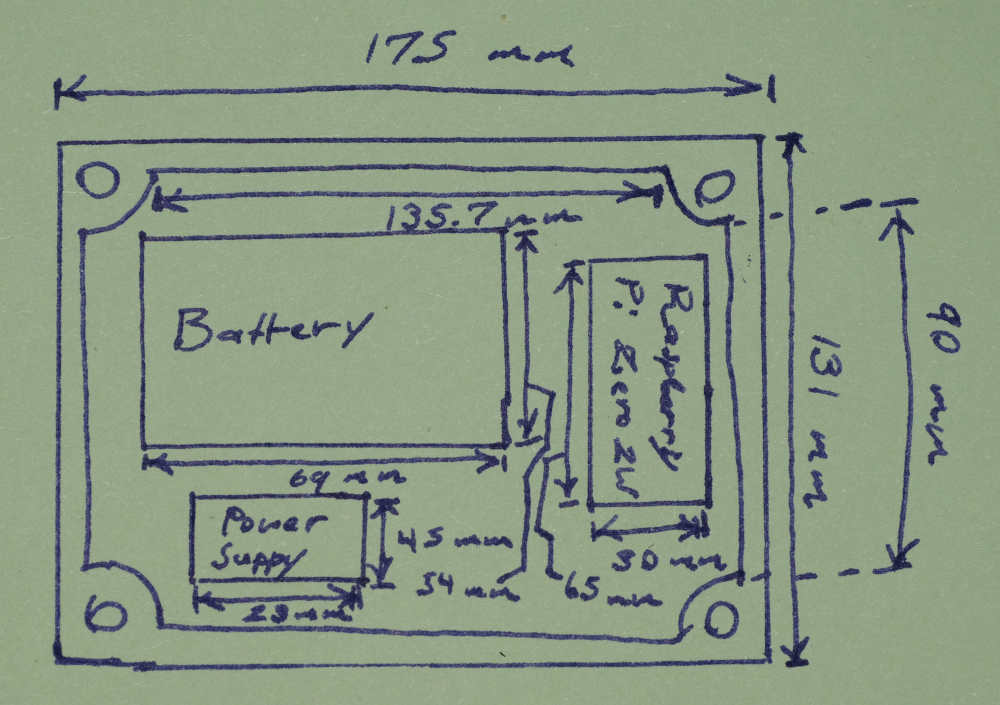 175 mm
135.7 mm
Battery
Raspberry
Pi Zero 2W
90 mm
131 mm
69 mm
Power
Supply
45 mm
30 mm
54 mm
65 mm
23 mm